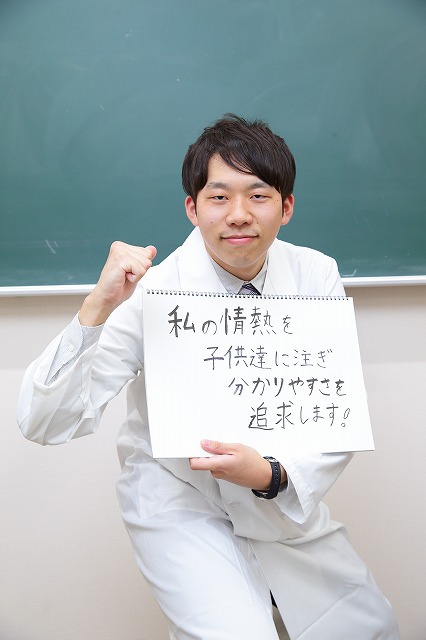 私の情熱を
子供達に注ぎ
分かりやすさを
追求します!